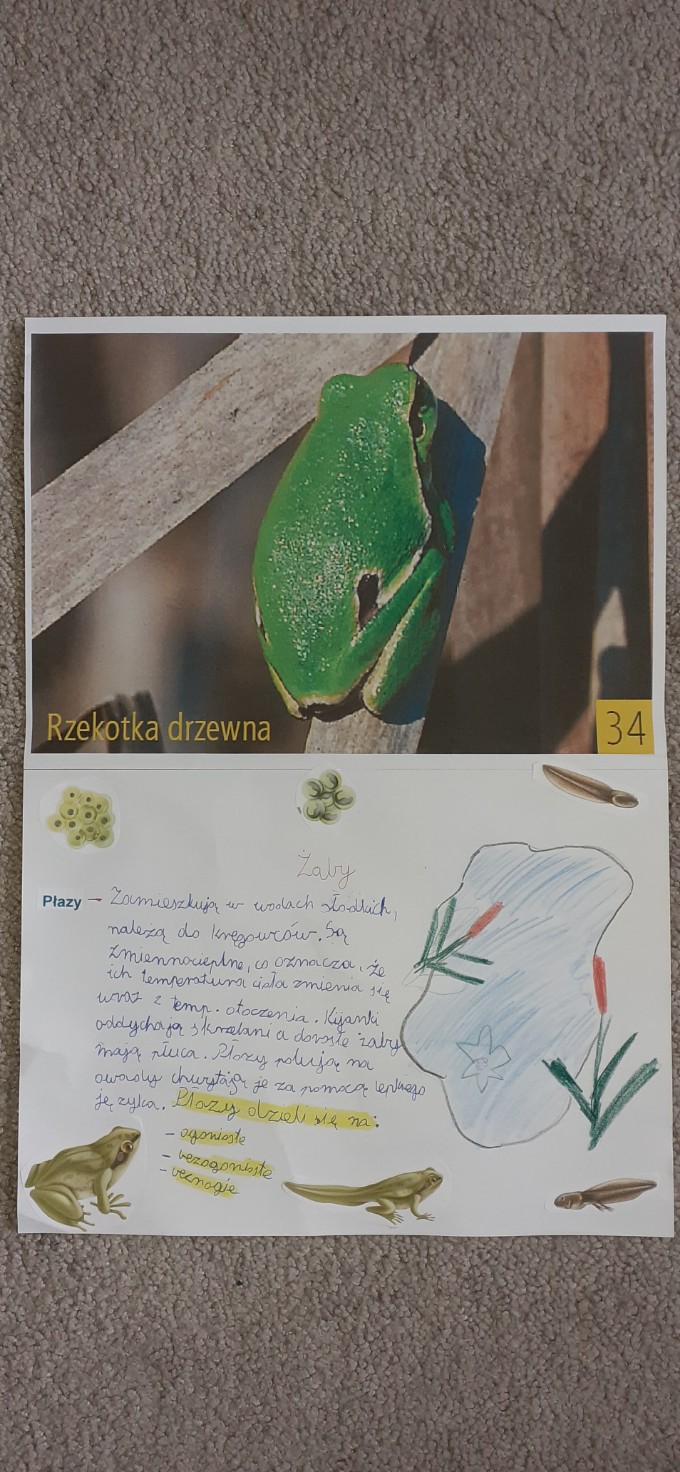 Rzekotka drzewna
34
Żaby
Płazy - Zamieszkują w wodach słodkich,
należą do kręgowców. Są
zmiennocieplne, co oznacza, że
ich temperatura ciała zmienia się
wraz z temp. otoczenia. Kijanki
oddychają skrzelami a dorosłe żaby
mają płuca. Płazy polują na
owady chwytają je za pomocą lepkiego
języka. Płazy dzieli się na:
- ogoniaste
- bezogoniaste
- beznogie